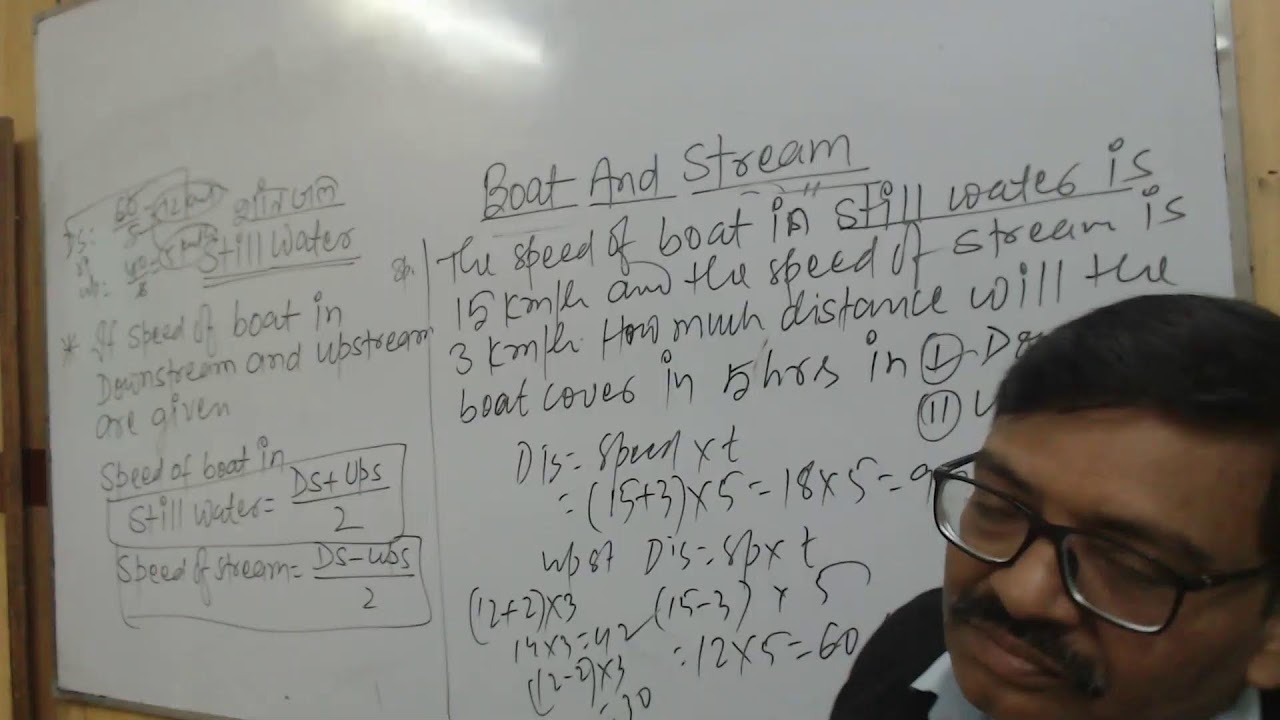 Boat And Stream
শান্ত জল
Still Water
* If speed of boat in
Downstream and upstream
are given
Speed of boat in
Still water = Ds+Ups
2
Speed of stream = Ds-Ups
2
The speed of boat in still water is
15 km/h and the speed of stream is
3 km/h. How much distance will the
boat cover in 5 hrs in (I)
(II)
Dis = speed x t
= (15+3) x 5 = 18 x 5 =
upst Dis = sp x t
(15-3) x 5
= 12 x 5 = 60
(12+2) x 3
14 x 3 = 42
(12-2) x 3
= 30